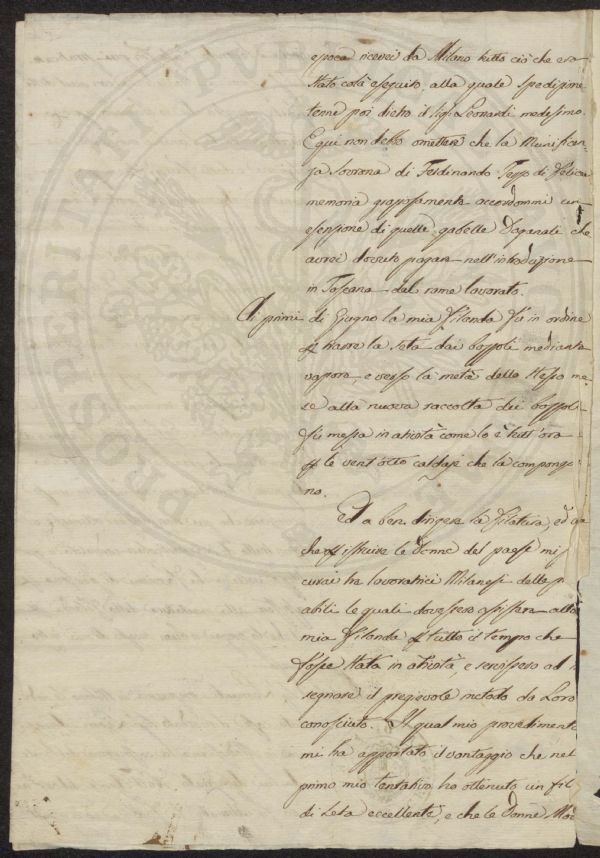 epoca ricevei da Milano tutto ciò che era
stato colà eseguito, alla quale spedizione
tenne poi dietro il Sig: Leonardi medesimo.
E qui non debbo omettere che la Munificen-
za Sovrana di Ferdinando Terzo di felice
memoria graziosamente accordommi un
esenzione di quelle gabelle Doganali che
avrei dovuto pagare nell'introduzione
in Toscana del rame lavorato.
Ai primi di Giugno la mia Filanda fu in ordine
per trarre la seta dai bozzoli mediante
vapore, e verso la metà dello stesso me-
se alla nuova raccolta dei bozzoli
fù messa in attività come lo è tutt'ora
per le vent'otto caldaje che la compongo-
no.
Ed a ben dirigere la filatura, ed an
che per istruire le Donne del paese mi
curai tre lavoratrici Milanesi delle
abili le quali dovessero assistere alla
mia Filanda per tutto il tempo che
fosse stata in attività, e servissero ad
segnare il pregievole metodo da Loro
conosciuto. Il qual mio provvedimento
mi ha apportato il vantaggio che nel
primo mio tentativo ho ottenuto un fil
di seta eccellente, e che le Donne
PROSPERITATI PVBLICAE